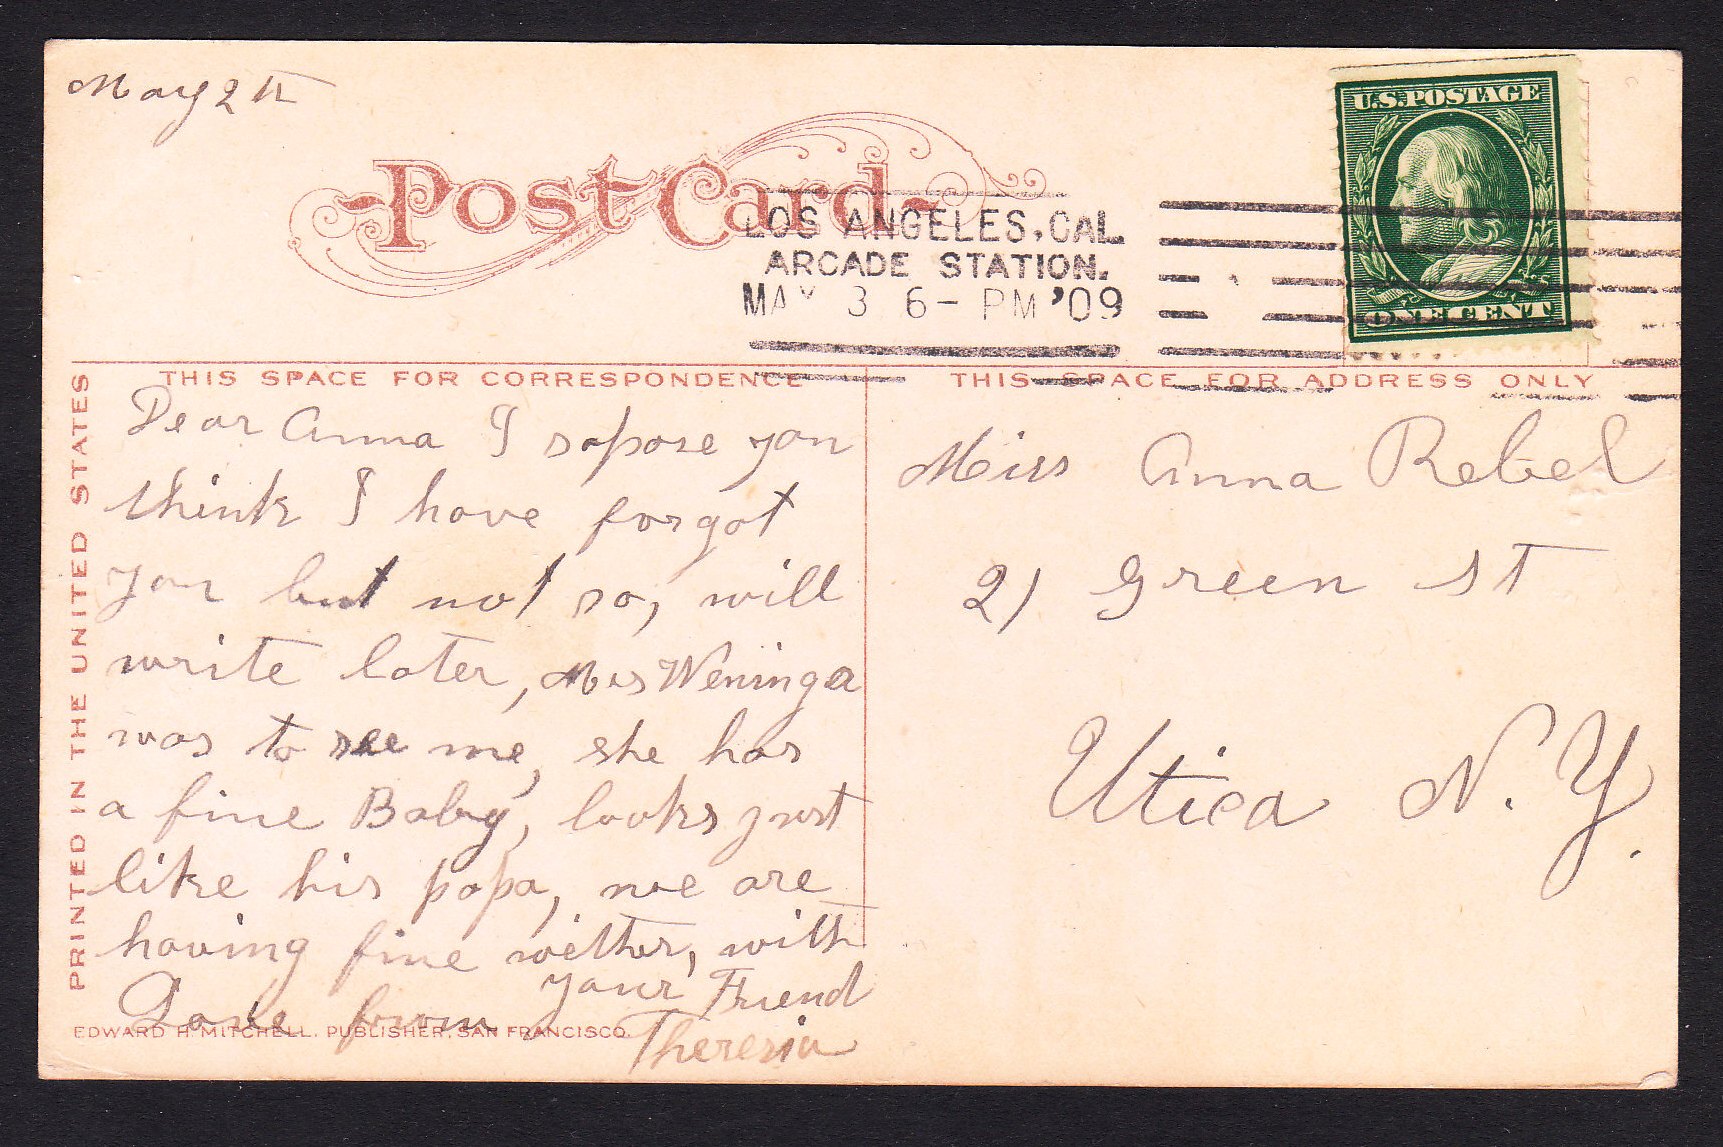 May 2th
Post Card
LOS ANGELES, CAL.
ARCADE STATION.
MAY 3 6- PM '09
U.S. POSTAGE
ONE CENT
THIS SPACE FOR CORRESPONDENCE
THIS SPACE FOR ADDRESS ONLY
PRINTED IN THE UNITED STATES
Dear Anna I sopose you
think I have forgot
you but not so, will
write later, Mrs Weninga
was to see me, she has
a fine Baby, looks just
like his papa, we are
having fine wether, with
Love from your Friend
Theresia
EDWARD H. MITCHELL, PUBLISHER, SAN FRANCISCO.
Miss Anna Rebel
21 Green St
Utica N.Y.